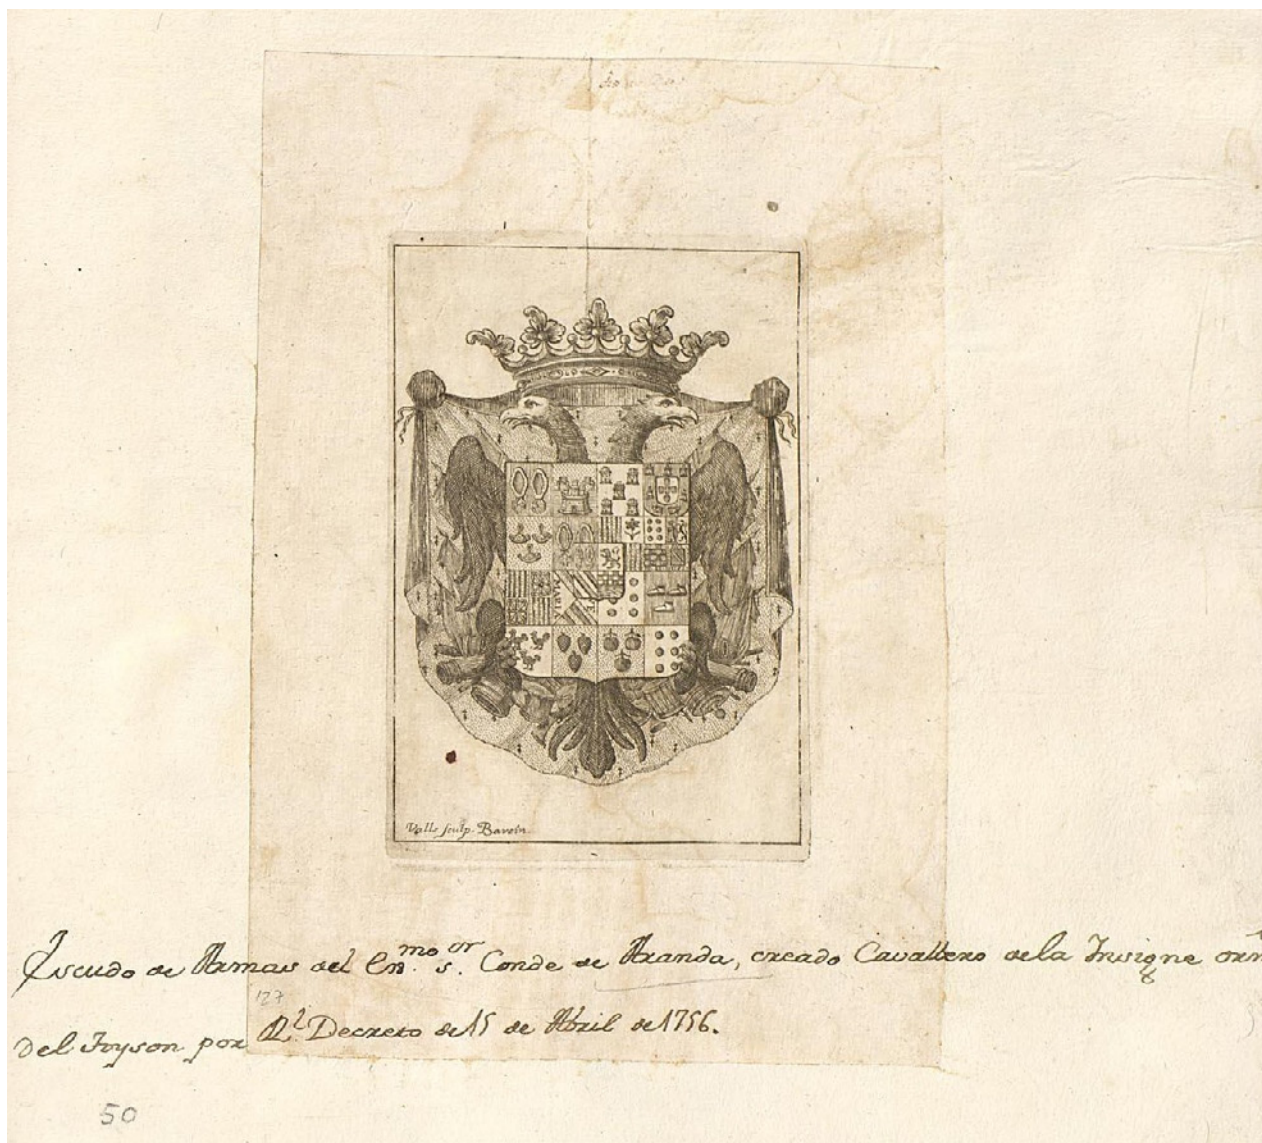 MARIA
Valls sculp. Barcin.
Escudo de Armas del En.mo s.or Conde de Aranda, creado Cavallero de la Insigne orn
127
del Toyson por Rl. Decreto de 15 de Abril de 1756.
50